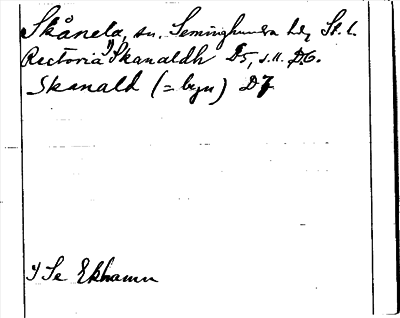 Skånela, sn. Seminghundra hd, St. l.
Rectoria 1) Skanaldh D5, s. 11. D6.
Skanald (= byn) D7
1) Se Ekhamn